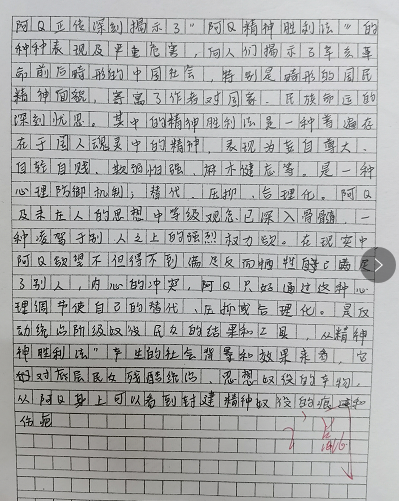 阿Q正传深刻揭示了"阿Q精神胜利法"的
种种表现及严重危害，向人们揭示了辛亥革
命前后畸形的中国社会，特别是畸形的国民
精神面貌，寄寓了作者对国家、民族命运的
深刻忧思。其中的精神胜利法是一种普遍存
在于国人魂灵中的精神，表现为妄自尊大、
自轻自贱、欺弱怕强、麻木健忘等。是一种
心理防御机制：替代、压抑、合理化。阿Q
及未庄人的思想中等级观念已深入骨髓，一
种凌驾于别人之上的强烈权力欲。在现实中
阿Q欲望不但得不到满足反而牺牲自己满足
了别人，内心的冲突，阿Q只好通过这种心
理调节使自己的替代、压抑或合理化。是反
动统治阶级奴役民众的结果和工具，从精神
神胜利法"产生的社会背景和效果来看，它
的对底层民众残酷统治、思想奴役的产物，
从阿Q身上可以看到封建精神奴役的痕迹和
伤疤